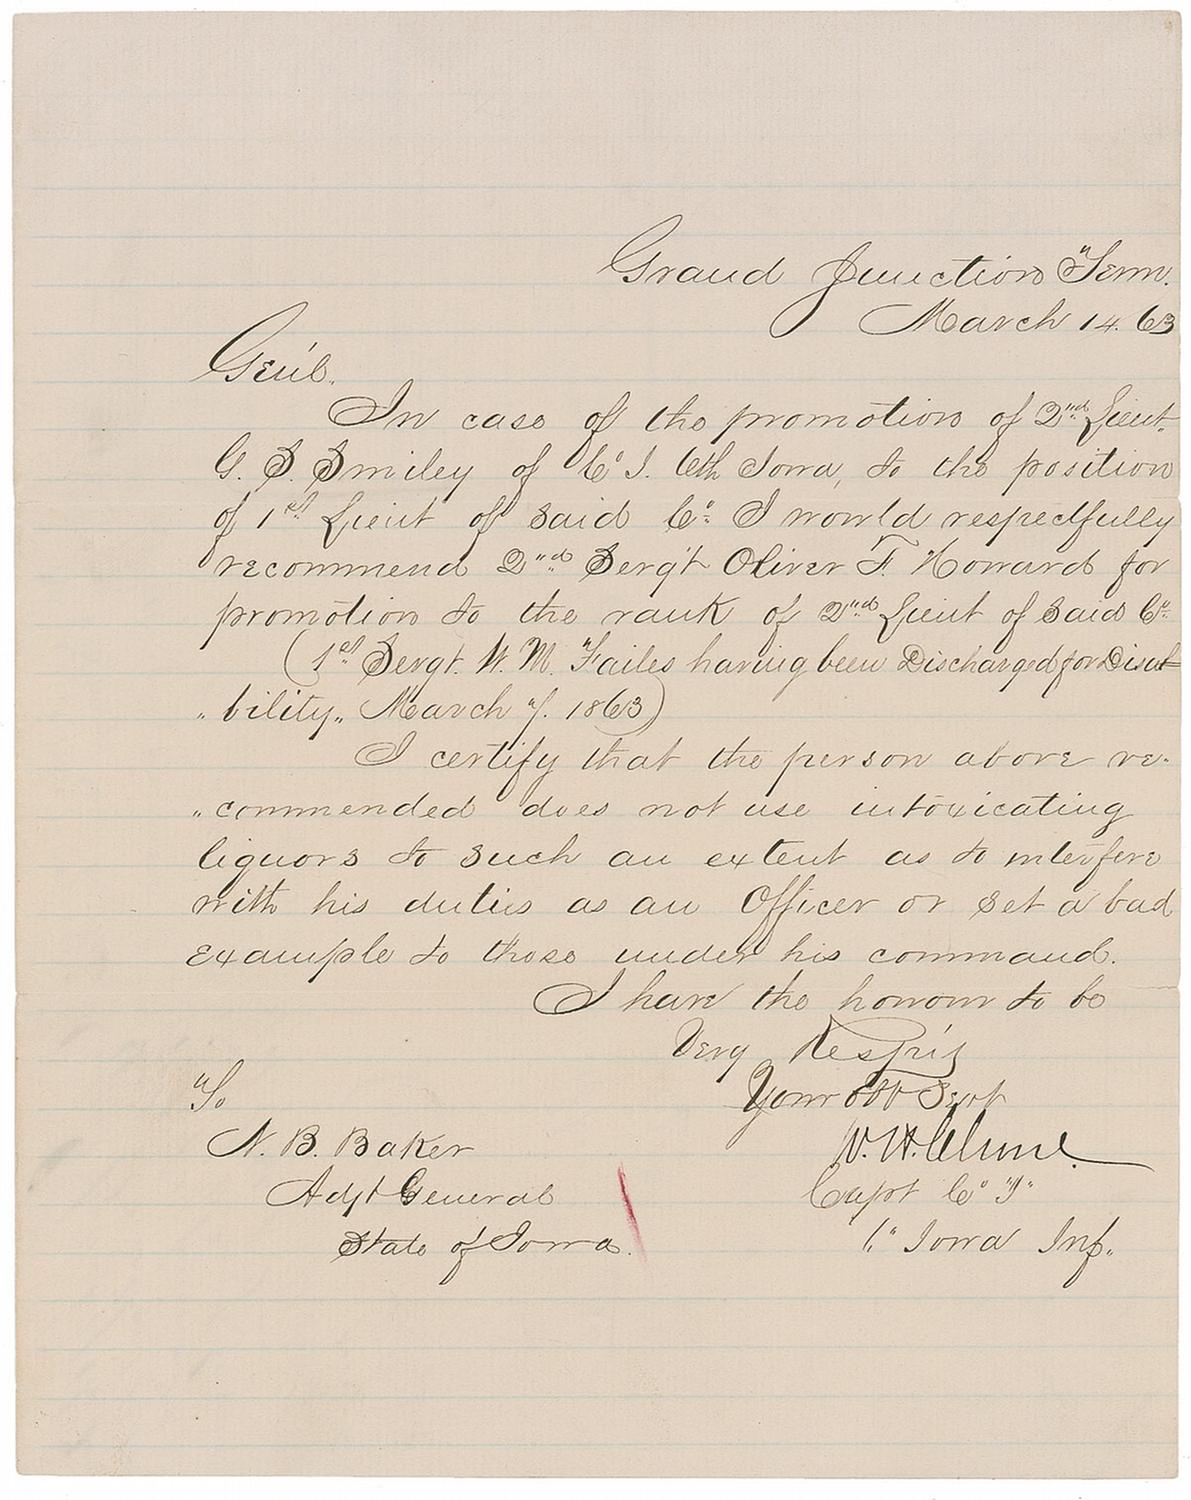 Grand Junction Tenn.
March 14. 63
Gen'l.
In case of the promotion of 2nd Lieut.
G. S. Smiley of Co I. 6th Iowa, to the position
of 1st Lieut of said Co. I would respectfully
recommend 2nd Serg't Oliver F. Howard for
promotion to the rank of 2nd Lieut of said Co.
(1st Sergt. W. M. Failes having been Discharged for Disa-
"bility" March 7. 1863)
I certify that the person above re-
"commended does not use intoxicating
liquors to such an extent as to interfere
with his duties as an Officer or set a bad
example to those under his command.
I have the honour to be
Very Resp'y
Your Obt Servt
W. H. Clune
Capt Co "I"
6" Iowa Inf.
To
N. B. Baker
Adjt General
State of Iowa.